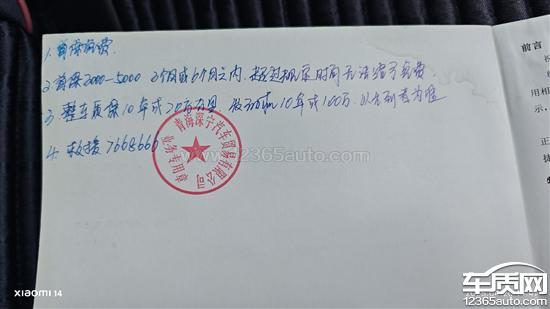 1. 首保免费.
2. 首保2000-5000 3个月或6个月之内. 超过规定时间无法给予免费
3. 整车质保10年或20万公里 发动机10年或100万. 以先到者为准
4. 救援 7668666
青海深宁汽车贸易有限公司
业务专用章
www.12365auto.com
前言
xiaomi 14
车质网
12365auto.com